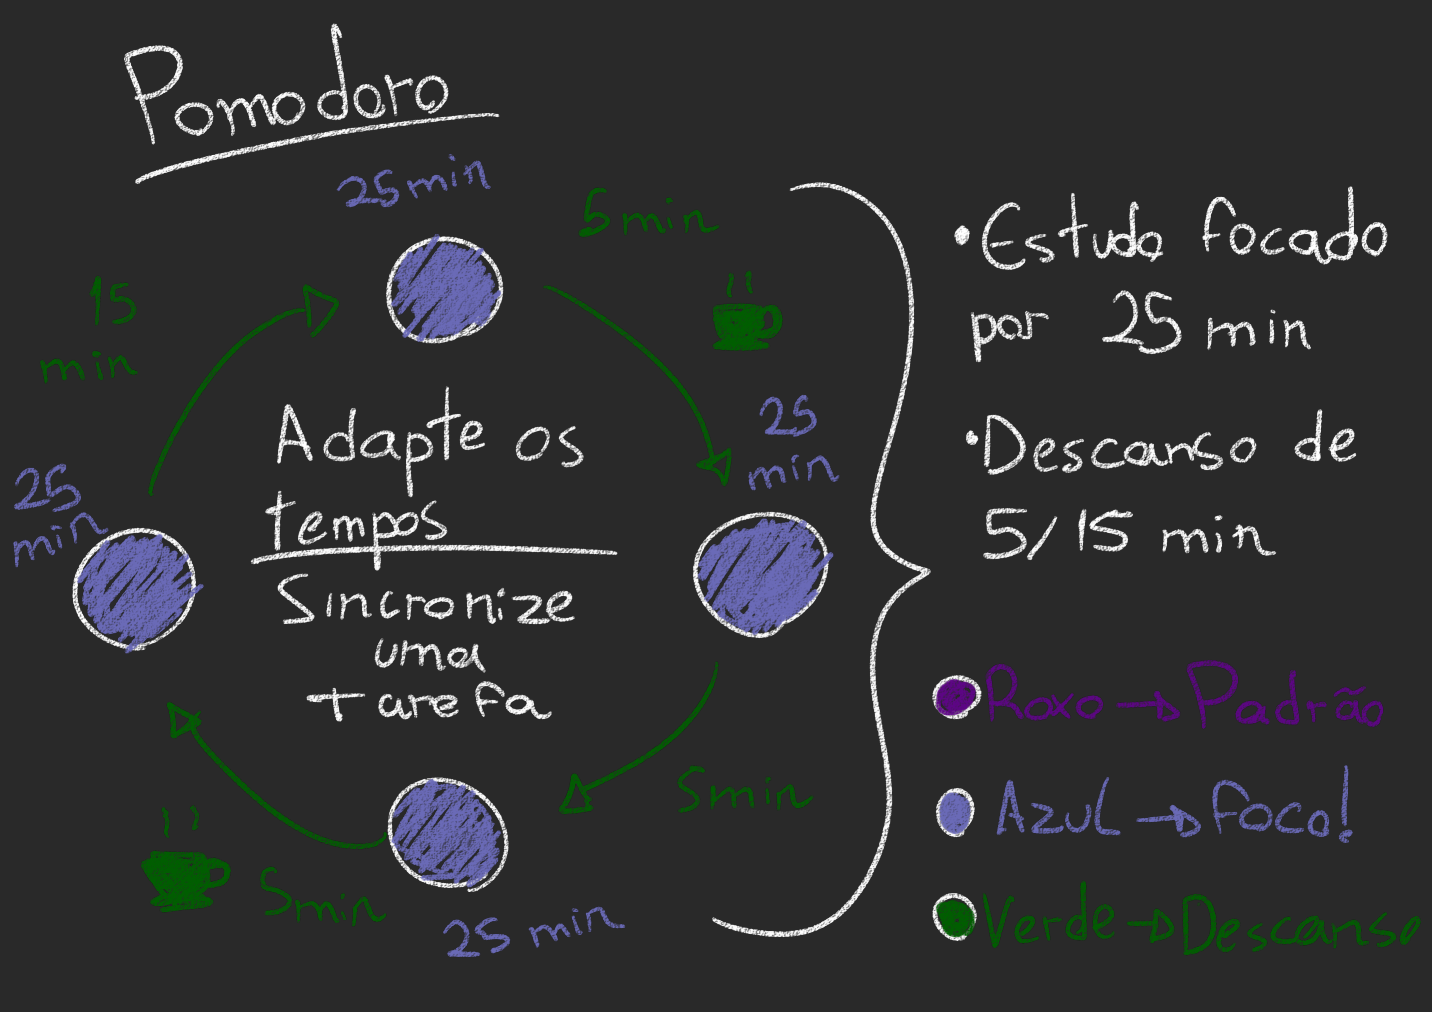 Pomodoro
25 min
5 min
15
min
25
min
25
min
Adapte os
tempos
Sincronize
uma
tarefa
5min
5min
25 min
•Estudo focado
por 25 min
•Descanso de
5/15 min
Roxo → Padrão
Azul → Foco!
Verde → Descanso